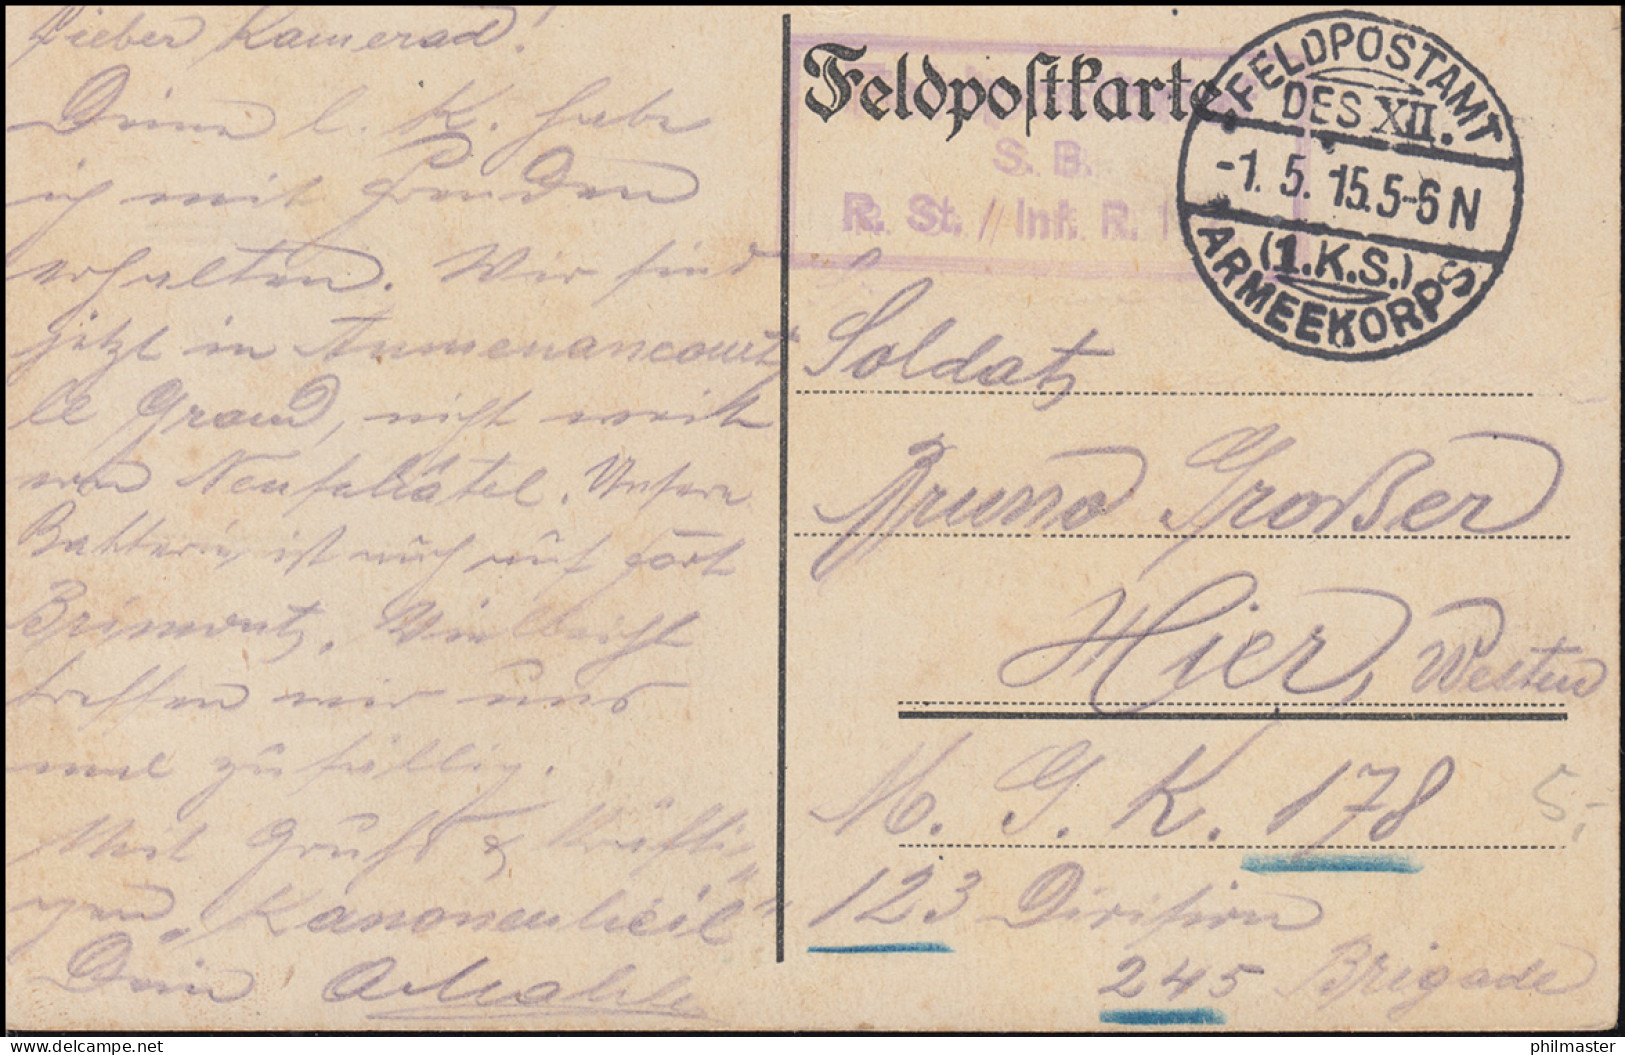 Lieber Kamerad!
Deine l. K. habe
ich mit Freuden
erhalten. Wir sind
jetzt in Aumenancourt
le Grand, nicht weit
von Neufchâtel. Unsere
Batterie ist auch auf Fort
Brimont. Vielleicht
treffen wir uns
mal zufällig.
Mit Gruß & kräfti-
gem „Kanonenheil"
Dein
Feldpostkarte
S. B.
R. St. // Inf. R. 1
FELDPOSTAMT
DES XII.
-1. 5. 15. 5-6 N
(1.K.S.)
ARMEEKORPS
Soldat
Bruno Großer
Hier, Westen
M. G. K. 178
5,-
123 Division
245 Brigade
philmaster